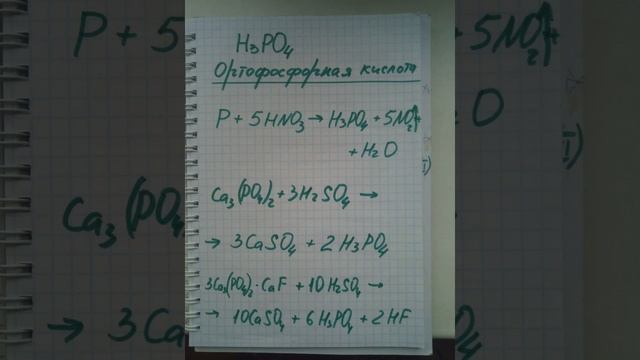 H₃PO₄
Ортофосфорная кислота
P + 5HNO₃ → H₃PO₄ + 5NO₂↑ +
+ H₂O
Ca₃(PO₄)₂ + 3H₂SO₄ →
→ 3CaSO₄ + 2H₃PO₄
3Ca₃(PO₄)₂·CaF + 10H₂SO₄ →
→ 10CaSO₄ + 6H₃PO₄ + 2HF